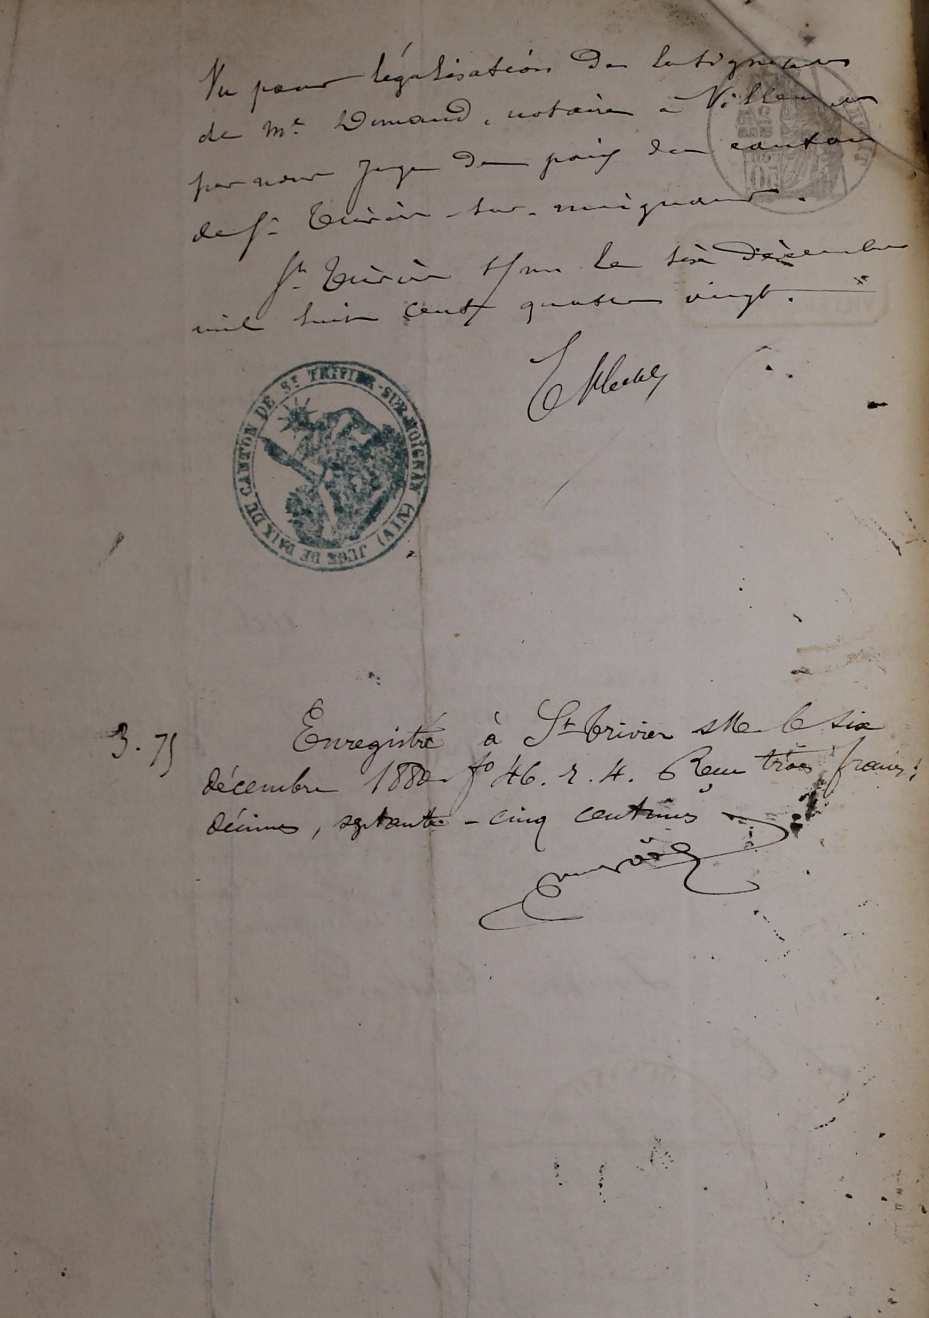 Vu pour légalisation de la signature
de Me Dumand, notaire à Villeneuve
par nous Juge de paix du canton
de St Trivier-sur-moignans.
St Trivier s/m le six décembre
mil huit cent quatre vingt.
CANTON DE ST TRIVIER-SUR-MOIGNAN (AIN) JUGE DE PAIX DU
3.75
Enregistré à St Trivier s/M le six
décembre 1880 fo 46. r. 4. Reçu trois francs,
décimes, septante-cinq centimes